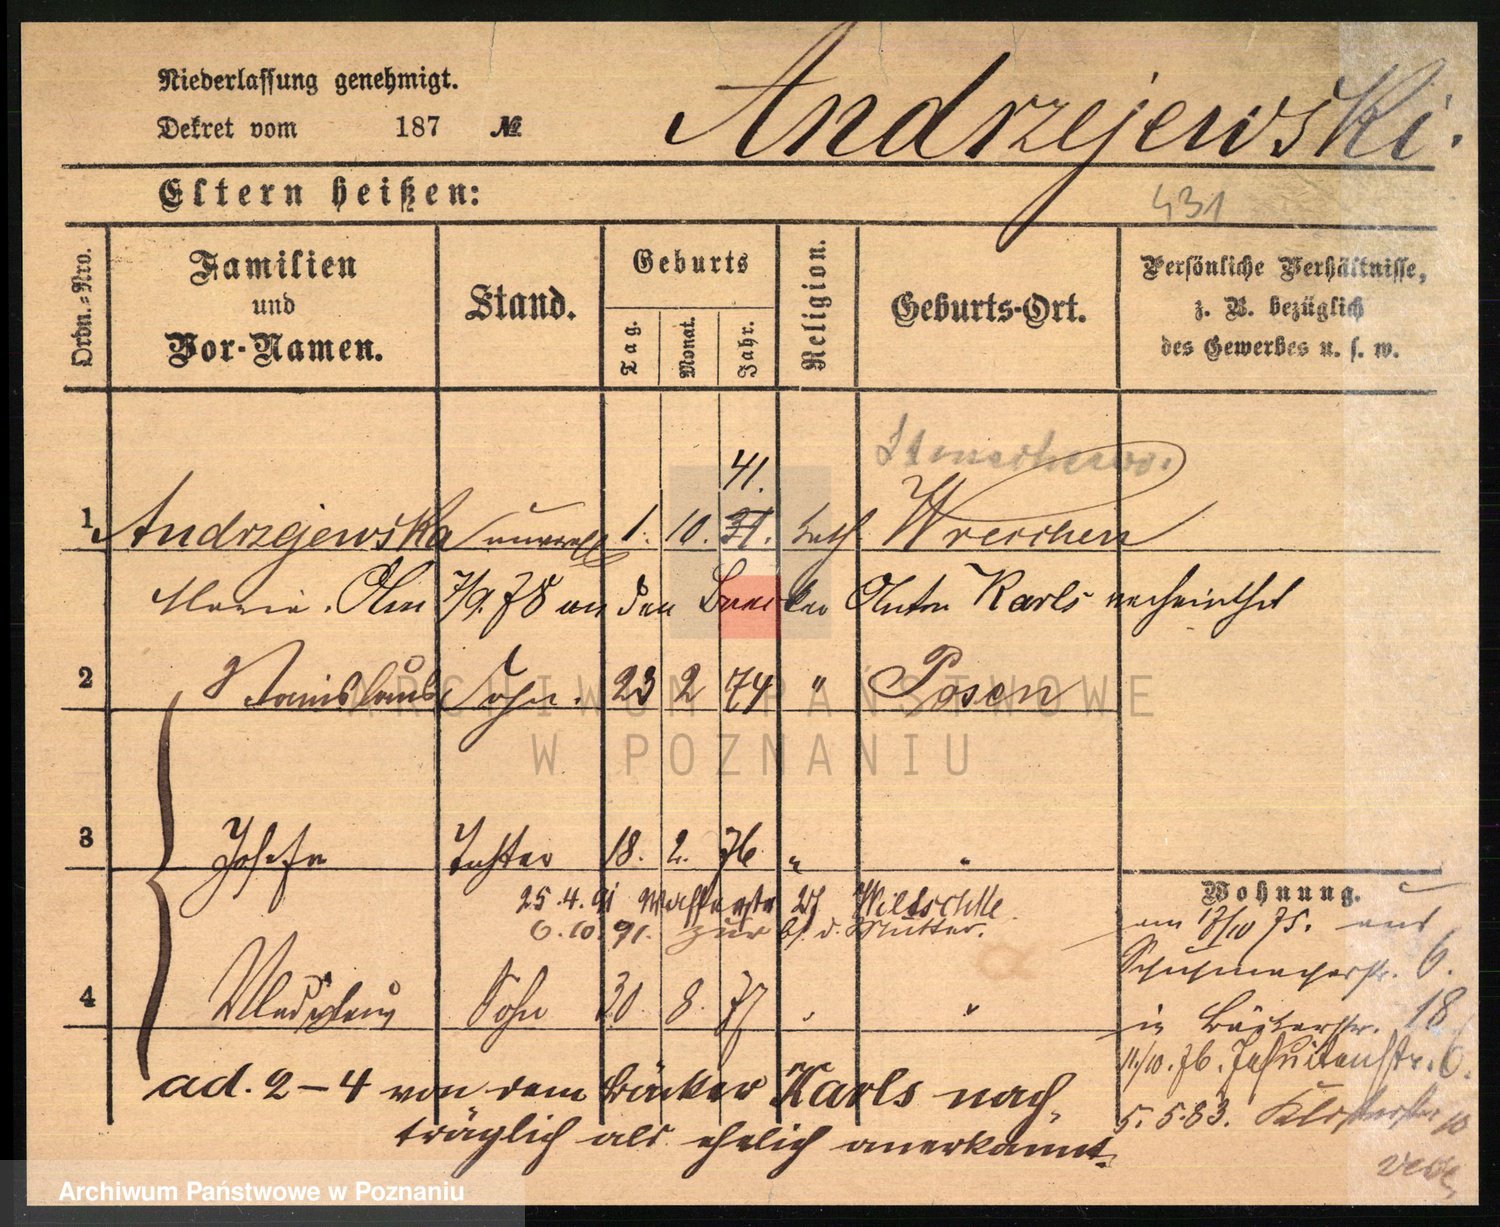 Niederlassung genehmigt.
Dekret vom 187 №
Andrzejewski.
Eltern heißen:
431
Ordn.-Nro.
Familien
und
Vor-Namen.
Stand.
Geburts
Tag.
Monat.
Jahr.
Religion.
Geburts-Ort.
Persönliche Verhältnisse,
z. B. bezüglich
des Gewerbes u. s. w.
41.
1. Andrzejewska unverehl 1. 10. 31. kath Wreschen
Marie. Am 7/9. 78 an den Baecker Anton Karls verheirathet
2 Stanislaus Sohn. 23 2 74 " Posen
3 Josefa Tochter 18. 2. 76. " "
25.4.91
6.10.91. zur d. Mutter.
4 Wladislaus Sohn 30 8. 77 " "
ad. 2–4 von dem Bäcker Karls nach-
träglich als ehelich anerkannt.
Wohnung.
am 17/10 75. aus
Schuhmacherstr. 6.
in Büttelstr. 18.
11/10. 76. Jesuitenstr. 6.
5.5.83. Klosterstr 10
ARCHIWUM PAŃSTWOWE
W POZNANIU
Archiwum Państwowe w Poznaniu